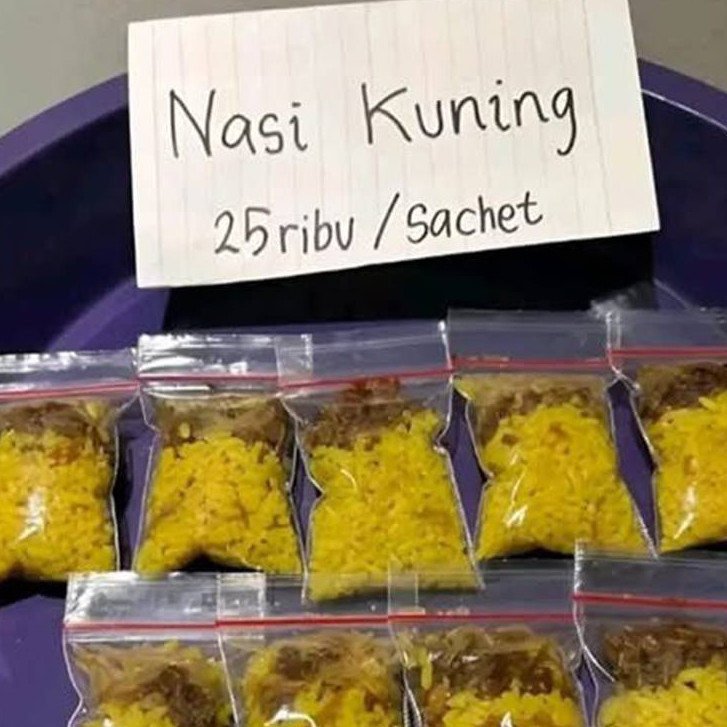 Nasi Kuning
25ribu/Sachet